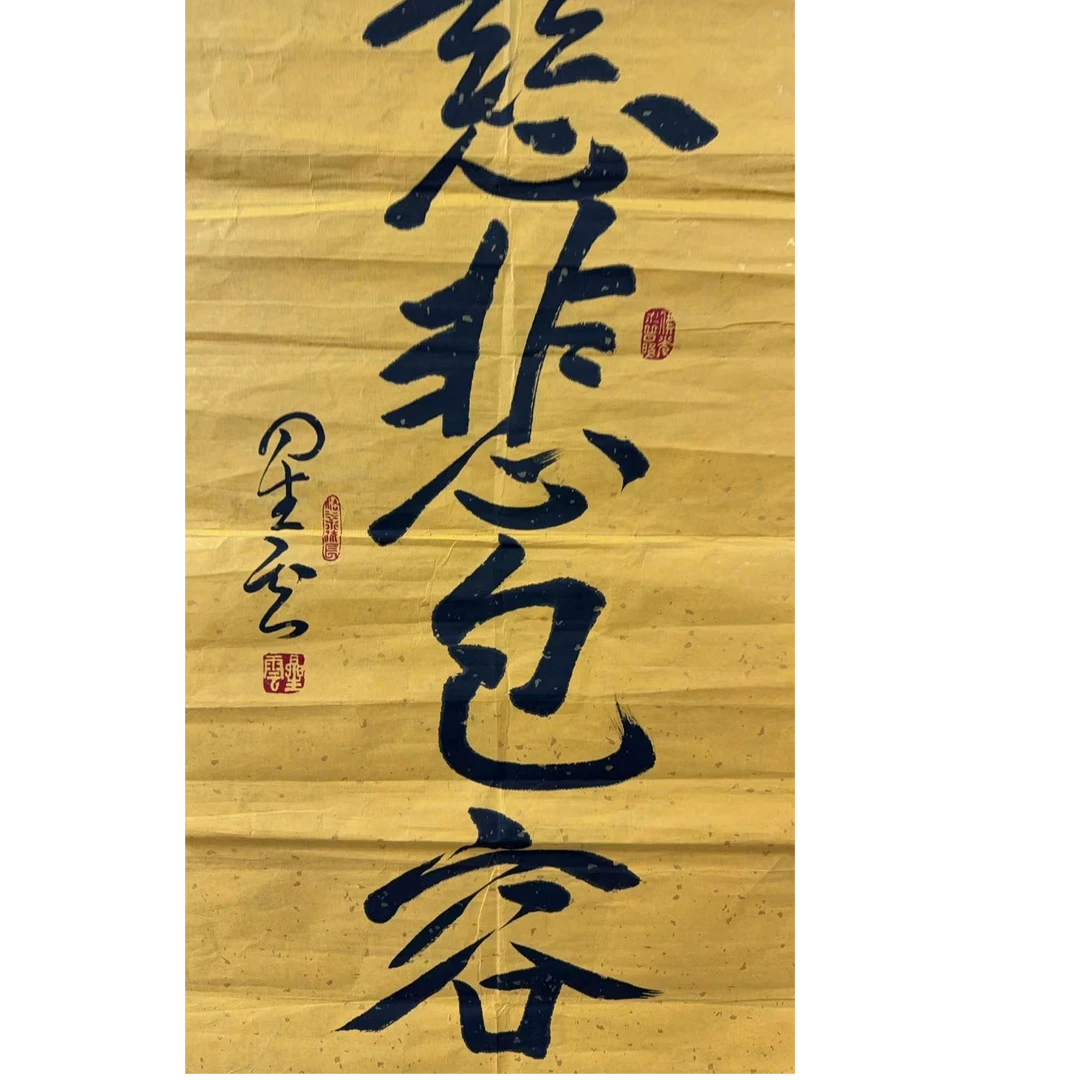 慈悲包容
星雲
星雲